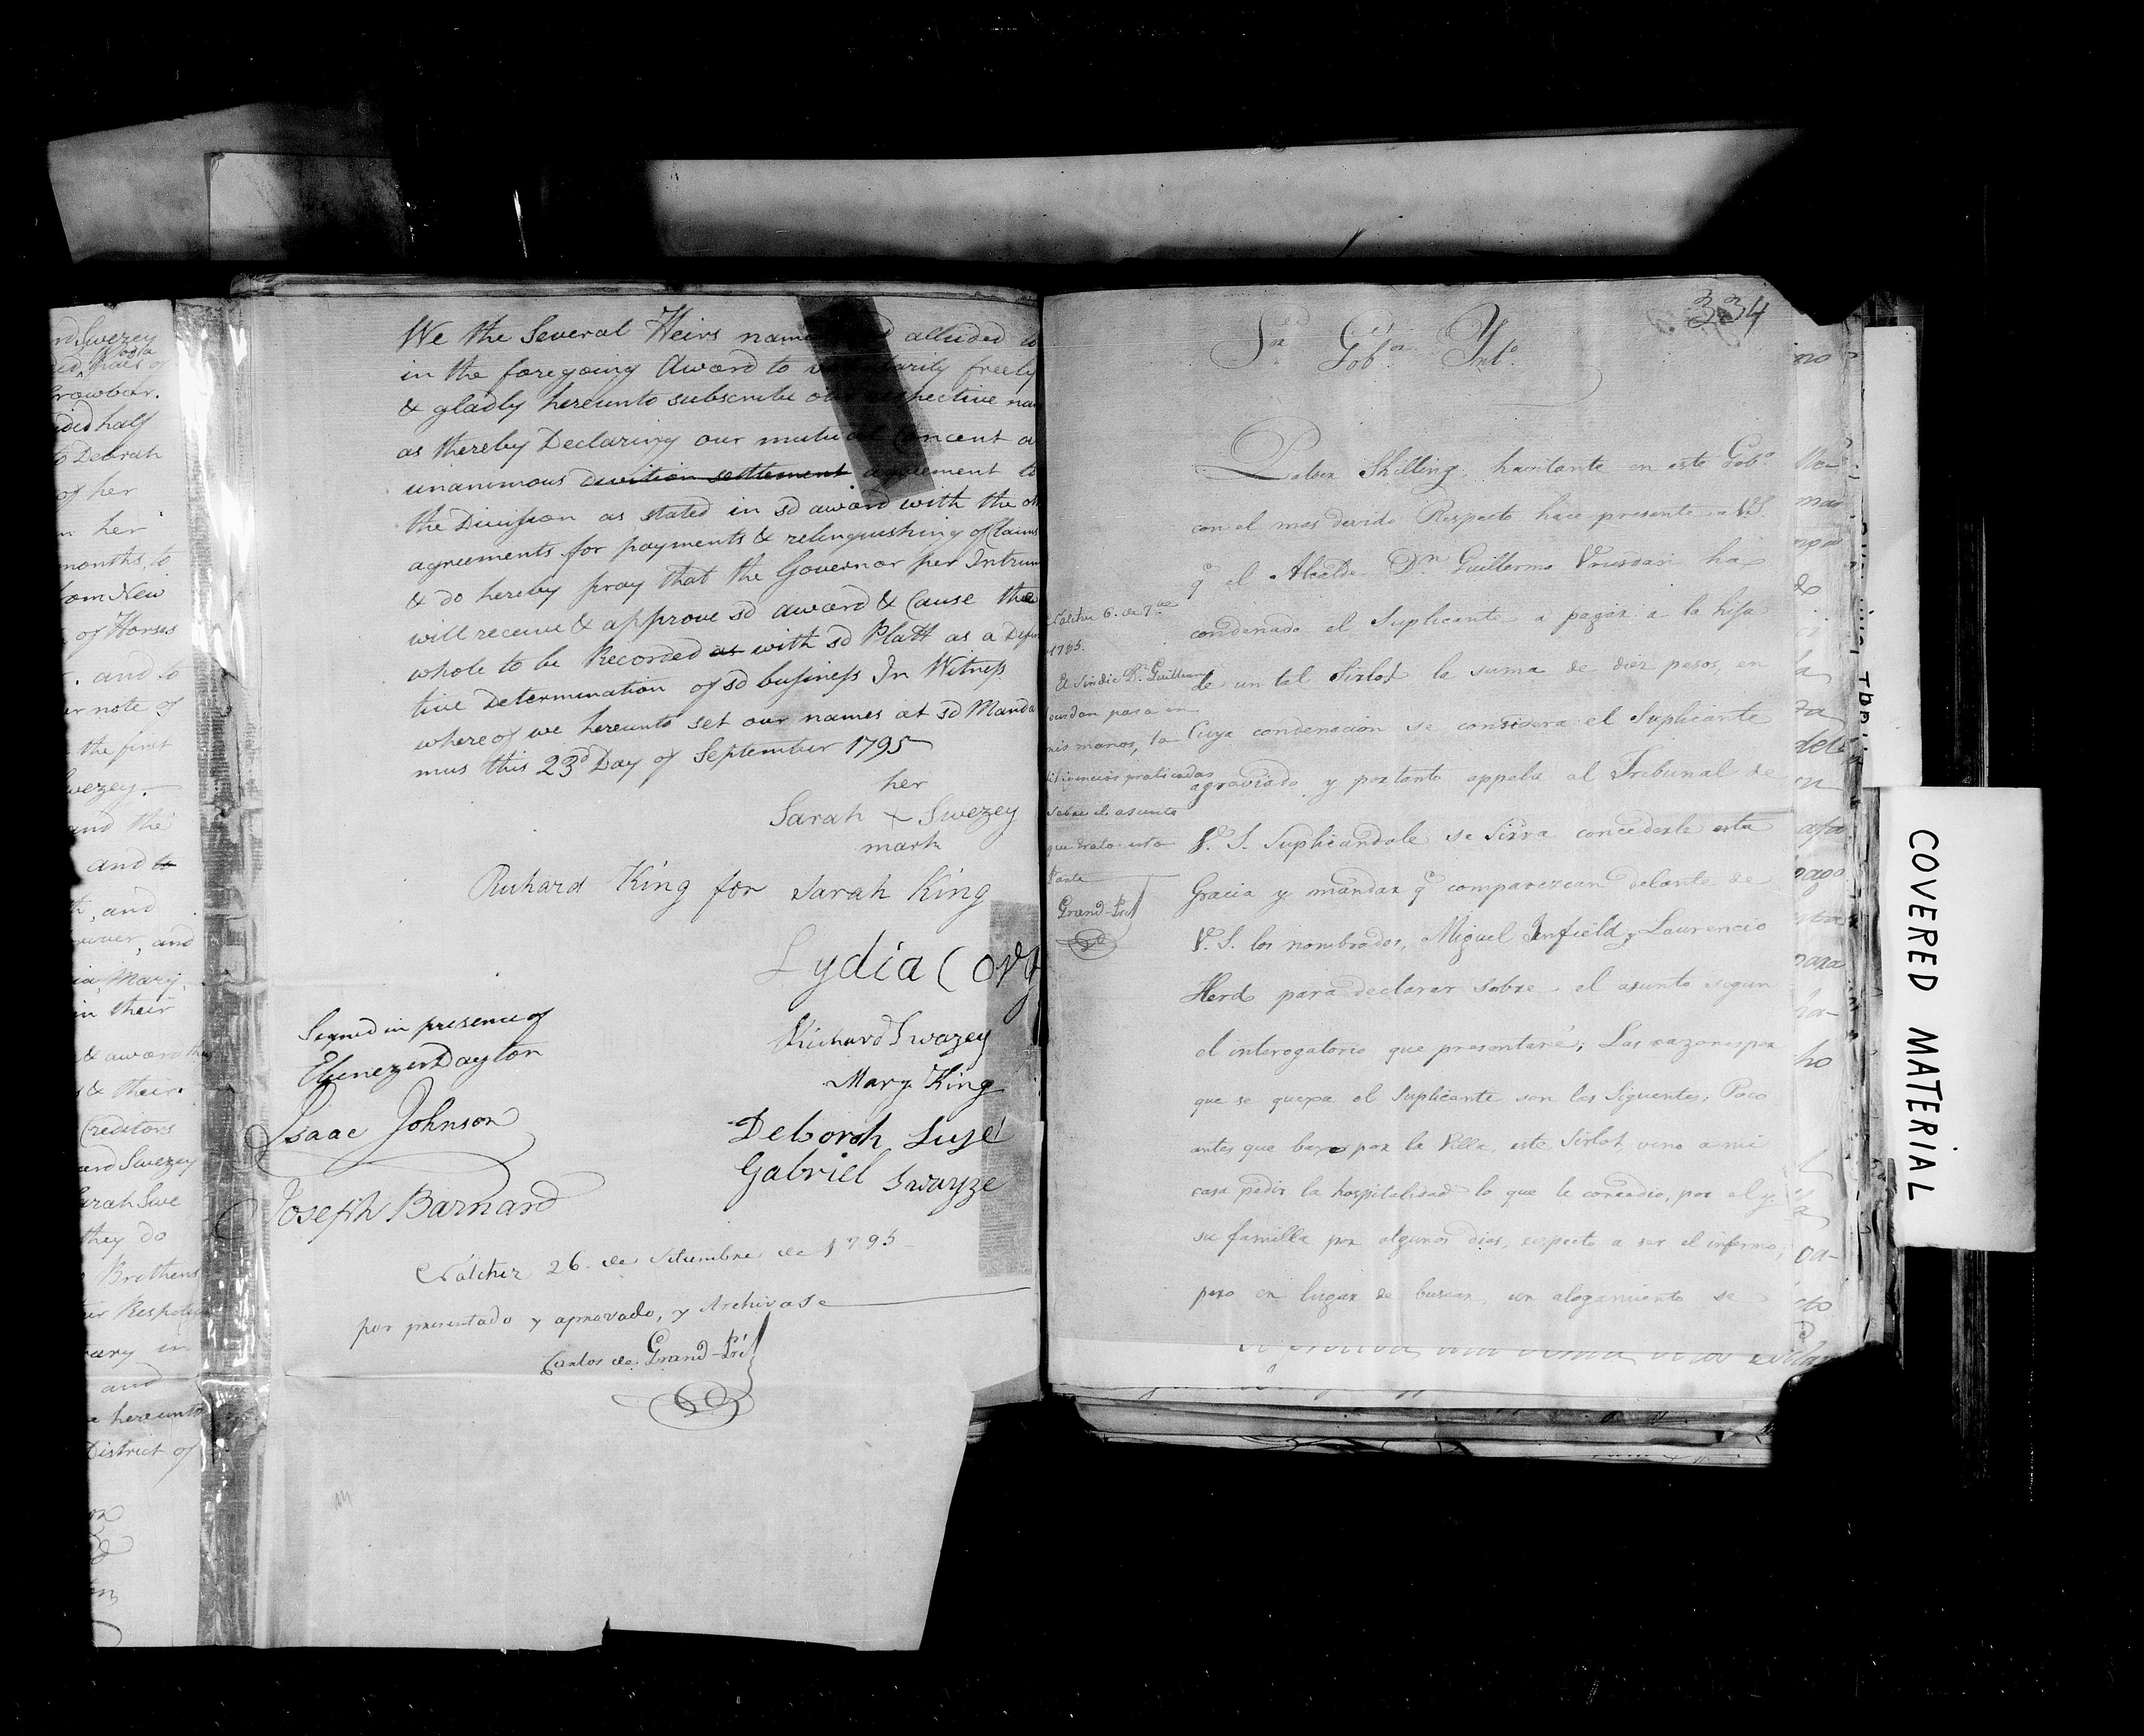 rd Swezey
Crowbar.
ided half
to Debrah
of her
her
months, to
from New
of Horses
and to
er note of
the first
Swezey.
and the
and to
th, and
and
Mary.
in their
& award
& their
Creditors
ard Swezey
arah Swe
they do
Brothers
eir Respect
and
hereunto
District of
We the Several Heirs nam d alluded to
in the foregoing Award to v tarily freely
& gladly hereunto subscribe our respective na
as thereby Declaring our mutual Concent a
unanimous devition settlement agreement to
the Division as stated in sd award with the
agreements for payments & relinquishing of Claims
& do hereby pray that the Governor per Intrum
will receive & approve sd award & Cause the
whole to be Recorded as with sd Platt as a Defin
tive Determination of sd business In Witness
where of we hereunto set our names at sd Manda
mus this 23d Day of September 1795
her
Sarah x Swezey
mark
Richard King for Sarah King
Lydia Cory
Signed in presence of
Ebenezer Dayton
Isaac Johnson
Joseph Barnard
Richard Swazey
Mary King
Deborah Luse
Gabriel Swayze
Natchez 26. de Setiembre de 1795
por presentado y aprovado, y Archivase
Carlos de Grand-Pré
334
Sr. Gobor. Into.
Shilling, havitante en este Gobo.
con el mas devido Respecto hace presente a V.S.
q.e el Alcalde Dn. Guillermo Vousdan ha
condenado el Suplicante a pagar a la hija
de un tal Sirlot la suma de diez pesos, en
Cuya condenacion se considera el Suplicante
agraviado y portanto appela al Tribunal de
V. S. Suplicandole se Sirva concederle esta
Gracia y mandar q.e comparezcan delante de
V. S. los nombrados, Miguel Infield y Laurencio
Herd para declarar sobre el asunto segun
el interogatorio que presentaré; Las razones por
que se quexa el Suplicante son las Siguentes; Poco
antes que baxo por la Villa, este Sirlot vino a mi
casa pedir la hospitalidad lo que le concedio, por el y
su familla por algunos dias, respecto a ser el infermo;
pero en lugar de buscar un alogamiento se
Natchez 6. de 7bre
1795.
El Sindic Dn. Guillermo
Vousdan pasa en
mis manos, la
diligencias praticadas
sobre el asunto
que trata esta
Parte
Grand-Pré
COVERED MATERIAL